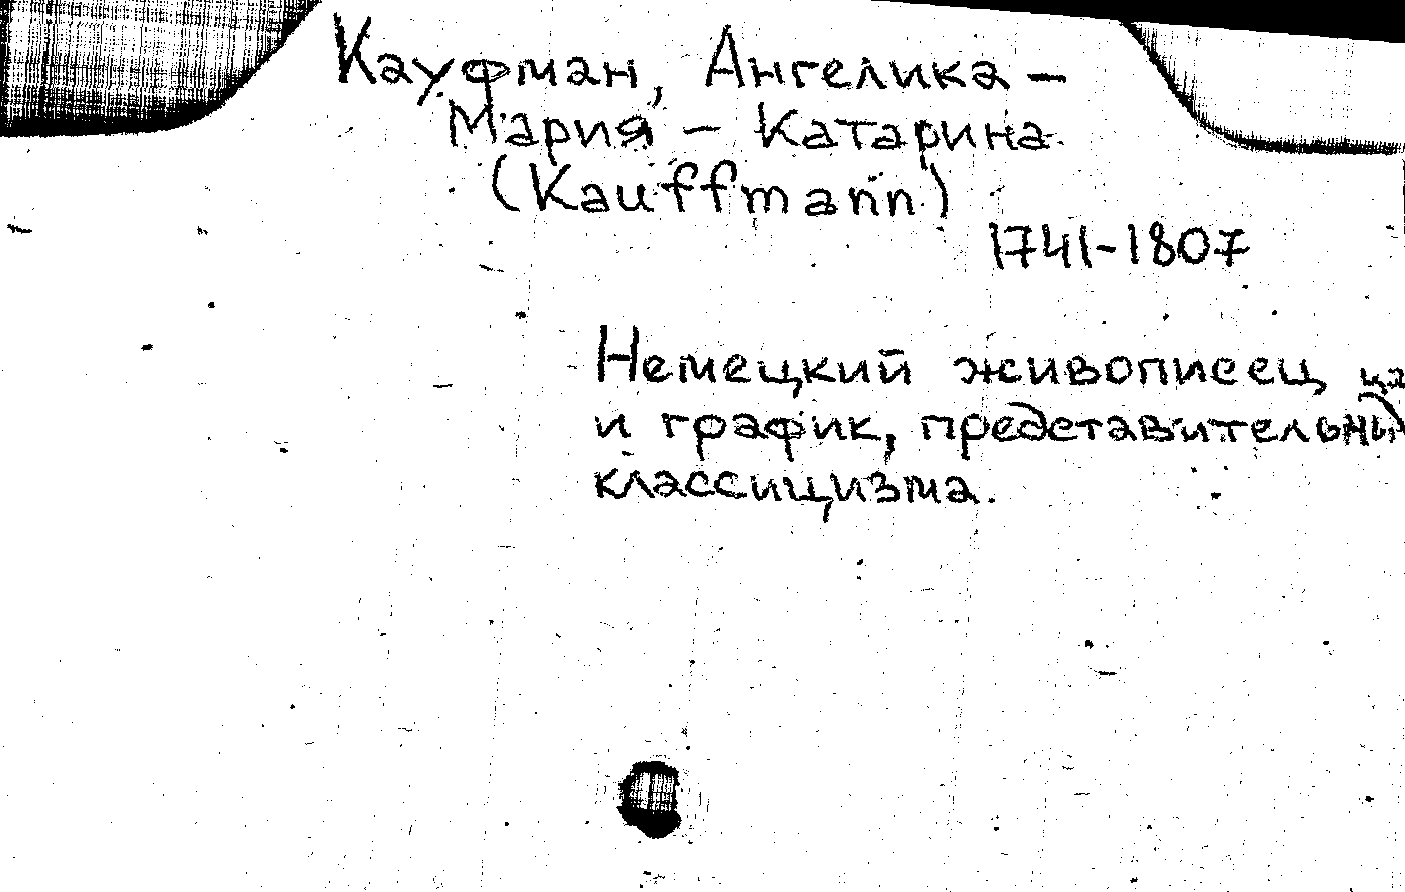 Кауфман, Ангелика –
Мария – Катарина
(Kauffmann)
1741-1807
Немецкий живописец
и график, представитель
классицизма.